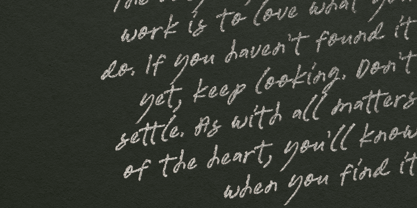 work is to love what you
do. If you haven't found it
yet, keep looking. Don't
settle. As with all matters
of the heart, you'll know
when you find it